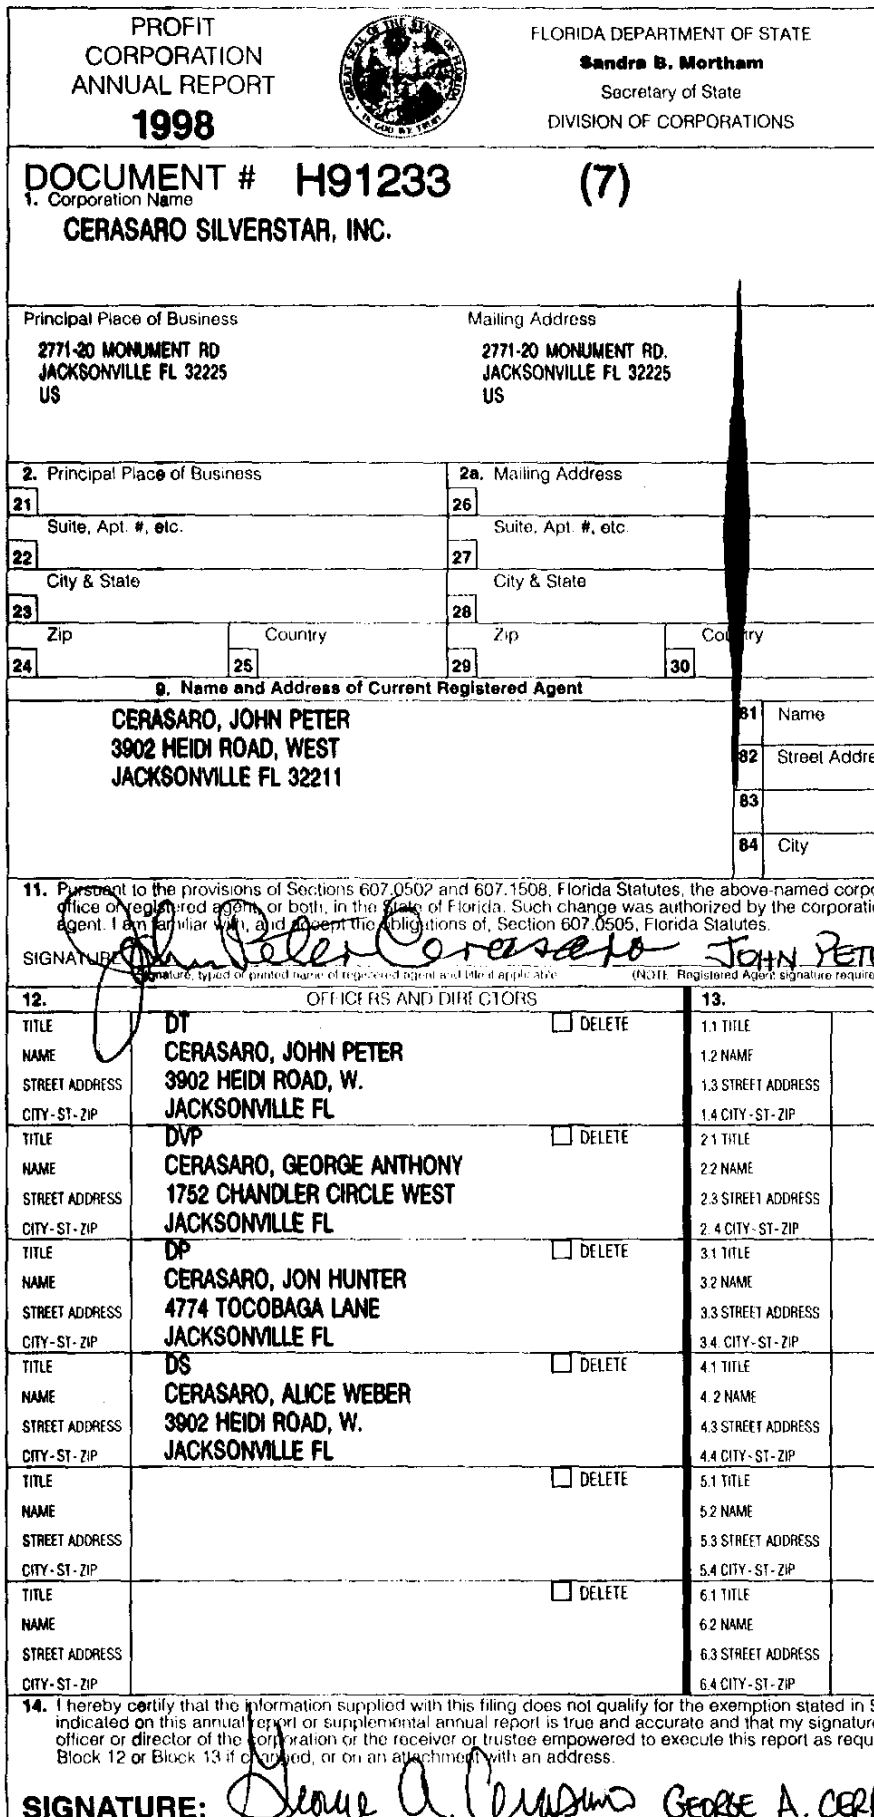 PROFIT
CORPORATION
ANNUAL REPORT
1998
GREAT SEAL OF THE STATE OF FLORIDA
IN GOD WE TRUST
FLORIDA DEPARTMENT OF STATE
Sandra B. Mortham
Secretary of State
DIVISION OF CORPORATIONS
DOCUMENT # H91233 (7)
1. Corporation Name
CERASARO SILVERSTAR, INC.
Principal Place of Business
2771-20 MONUMENT RD
JACKSONVILLE FL 32225
US
Mailing Address
2771-20 MONUMENT RD.
JACKSONVILLE FL 32225
US
2. Principal Place of Business
21
Suite, Apt. #, etc.
22
City & State
23
Zip
24
Country
25
2a. Mailing Address
26
Suite, Apt. #, etc.
27
City & State
28
Zip
29
Country
30
9. Name and Address of Current Registered Agent
CERASARO, JOHN PETER
3902 HEIDI ROAD, WEST
JACKSONVILLE FL 32211
81 Name
82 Street Addre
83
84 City
11. Pursuant to the provisions of Sections 607.0502 and 607.1508, Florida Statutes, the above-named corpo
office or registered agent, or both, in the State of Florida. Such change was authorized by the corporati
agent. I am familiar with, and accept the obligations of, Section 607.0505, Florida Statutes.
SIGNATURE John Peter Cerasaro JOHN PETE
Signature, typed or printed name of registered agent and title if applicable (NOTE: Registered Agent signature require
12. OFFICERS AND DIRECTORS 13.
TITLE DT DELETE 1.1 TITLE
NAME CERASARO, JOHN PETER 1.2 NAME
STREET ADDRESS 3902 HEIDI ROAD, W. 1.3 STREET ADDRESS
CITY-ST-ZIP JACKSONVILLE FL 1.4 CITY-ST-ZIP
TITLE DVP DELETE 2.1 TITLE
NAME CERASARO, GEORGE ANTHONY 2.2 NAME
STREET ADDRESS 1752 CHANDLER CIRCLE WEST 2.3 STREET ADDRESS
CITY-ST-ZIP JACKSONVILLE FL 2.4 CITY-ST-ZIP
TITLE DP DELETE 3.1 TITLE
NAME CERASARO, JON HUNTER 3.2 NAME
STREET ADDRESS 4774 TOCOBAGA LANE 3.3 STREET ADDRESS
CITY-ST-ZIP JACKSONVILLE FL 3.4. CITY-ST-ZIP
TITLE DS DELETE 4.1 TITLE
NAME CERASARO, ALICE WEBER 4.2 NAME
STREET ADDRESS 3902 HEIDI ROAD, W. 4.3 STREET ADDRESS
CITY-ST-ZIP JACKSONVILLE FL 4.4 CITY-ST-ZIP
TITLE DELETE 5.1 TITLE
NAME 5.2 NAME
STREET ADDRESS 5.3 STREET ADDRESS
CITY-ST-ZIP 5.4 CITY-ST-ZIP
TITLE DELETE 6.1 TITLE
NAME 6.2 NAME
STREET ADDRESS 6.3 STREET ADDRESS
CITY-ST-ZIP 6.4 CITY-ST-ZIP
14. I hereby certify that the information supplied with this filing does not qualify for the exemption stated in S
indicated on this annual report or supplemental annual report is true and accurate and that my signature
officer or director of the corporation or the receiver or trustee empowered to execute this report as requ
Block 12 or Block 13 if changed, or on an attachment with an address.
SIGNATURE: George A. Cerasaro GEORGE A. CERA